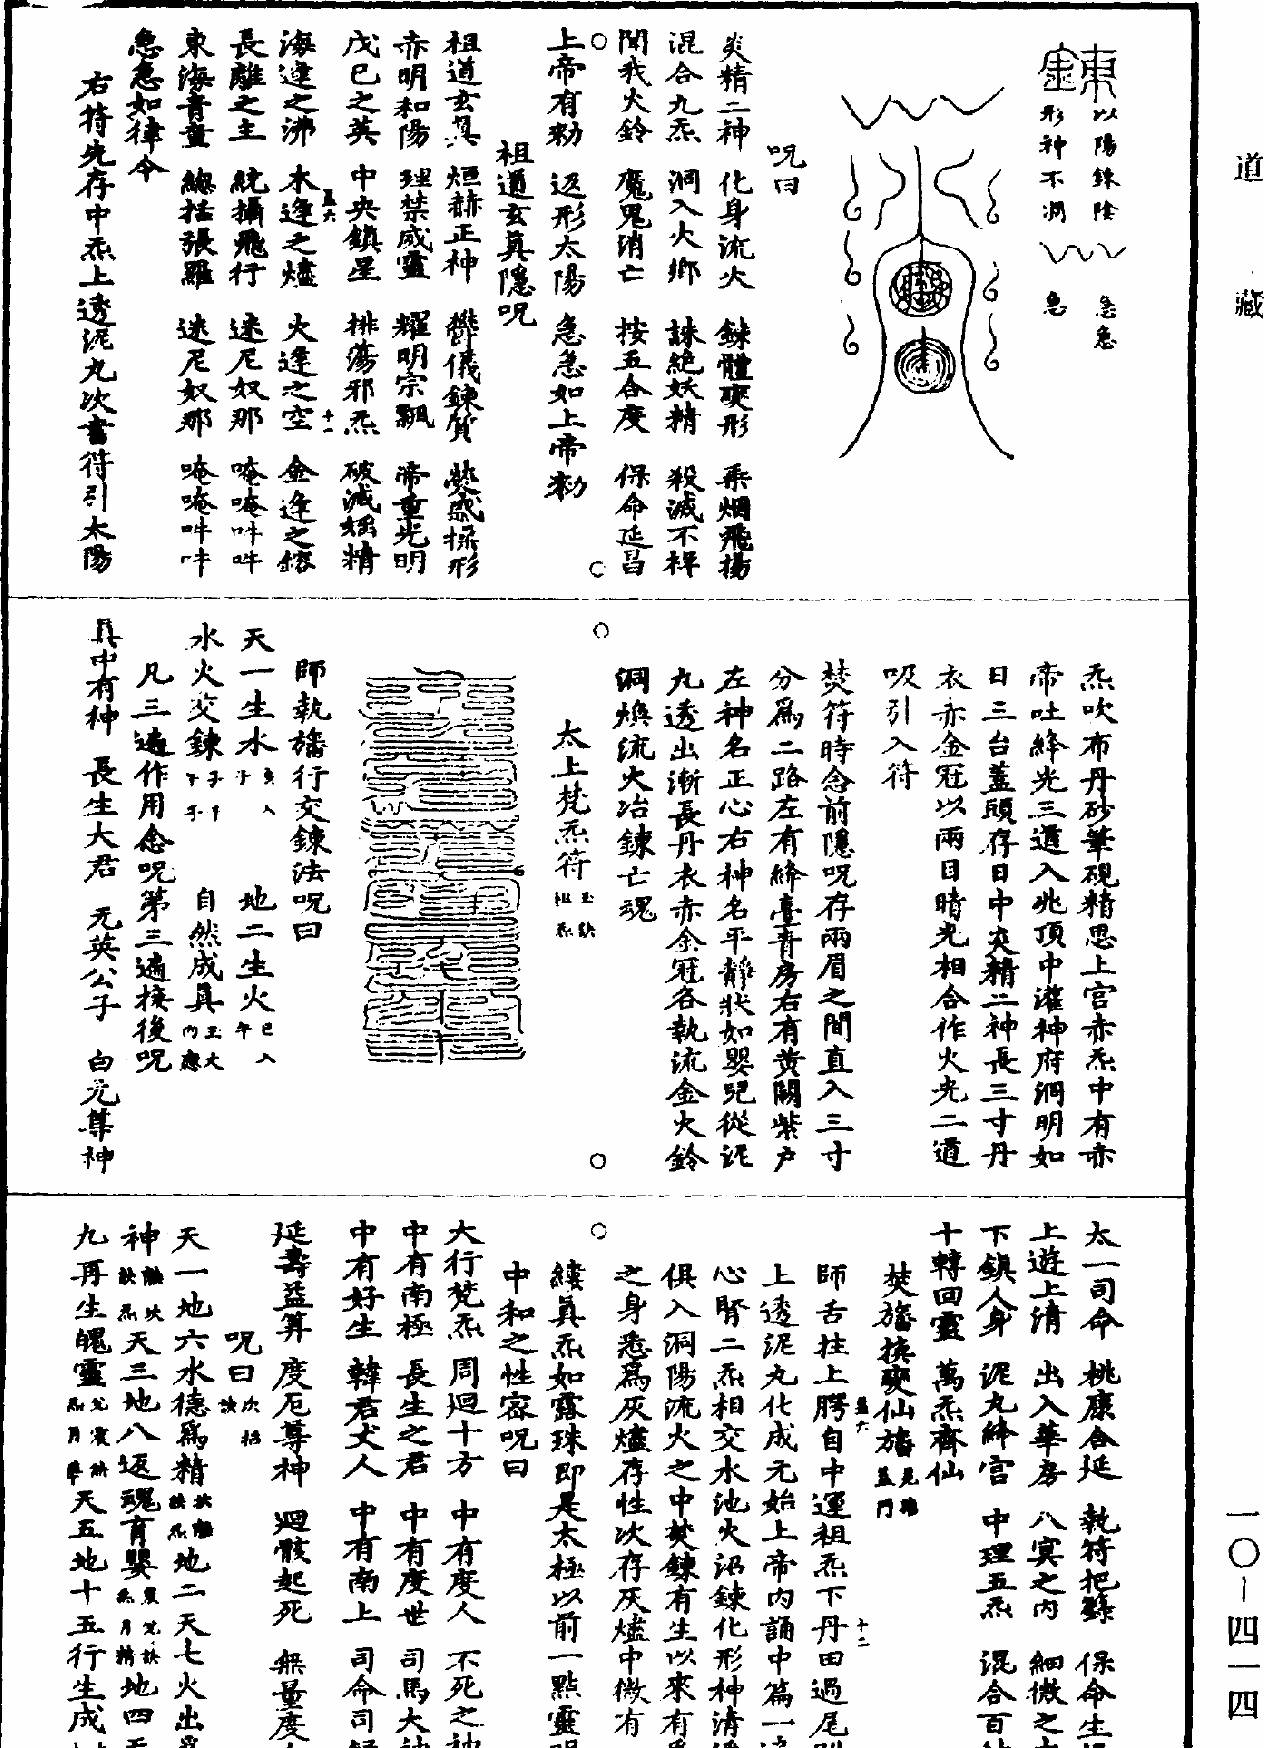 道藏
一〇—四一四
錬
以陽錬陰
形神不凋
急急
急
呪曰
炎精二神 化身流火 錬體變形 乘烟飛揚
混合九炁 洞入火鄉 誅絕妖精 殺滅不祥
聞我火鈴 魔鬼消亡 按五合度 保命延昌
上帝有勑 返形太陽 急急如上帝勑
祖道玄真隱呪
祖道玄真 烜赫正神 鬱儀鍊質 熒惑採形
赤明和陽 理禁威靈 耀明宗飄 帝重光明
戊巳之英 中央鎮星 排蕩邪炁 破滅妖精
海逢之沸 木逢之燼 火逢之空 金逢之鎔
長離之主 統攝飛行 迷尼奴那 唵唵吽吽
東海青童 總括張羅 迷尼奴那 唵唵吽吽
急急如律令
右符先存中炁上透泥丸次書符引太陽
炁吹布丹砂筆硯精思上宮赤炁中有赤
帝吐絳光三道入兆頂中灌神府洞明如
日三台蓋頭存日中炎精二神長三寸丹
衣赤金冠以兩目晴光相合作火光二道
吸引入符
焚符時念前隱呪存兩眉之間直入三寸
分爲二路左有絳臺青房右有黃闕紫户
左神名正心右神名平靜狀如嬰兒從泥
九透出漸長丹衣赤金冠各執流金火鈴
洞煥流火冶鍊亡魂
太上梵炁符
師執旛行交鍊法呪曰
天一生水 地二生火
水火交鍊 自然成真
凡三遍作用念呪第三遍接後呪
真中有神 長生大君 无英公子 白元尊神
太一司命 桃康合延 執符把籙 保命生
上遊上清 出入華房 八冥之内 細微之
下鎮人身 泥丸絳宮 中理五炁 混合百
十轉回靈 萬炁齊仙
焚旛換變仙旛
師舌拄上腭自中運祖炁下丹田過尾
上透泥丸化成元始上帝内誦中篇一
心腎二炁相交水池火沼鍊化形神清
俱入洞陽流火之中焚鍊有生以來有
之身悉爲灰燼存性次存灰燼中微有
縷真炁如露珠即是太極以前一點靈
中和之性密呪曰
大行梵炁 周迴十方 中有度人 不死之神
中有南極 長生之君 中有度世 司馬大神
中有好生 韓君丈人 中有南上 司命司
延壽益算 度厄尊神 迴骸起死 無量度
呪曰
天一地六水德爲精 地二天七火出
神 天三地八返魂育嬰 地四
九再生魄靈 天五地十五行生成